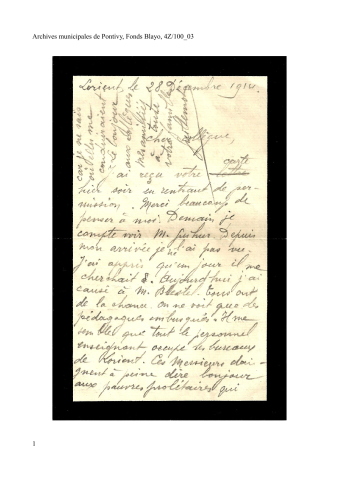 Archives municipales de Pontivy, Fonds Blayo, 4Z/100_03
Lorient, le 28 Décembre 1914.
car je ne sais
où elles me
conduiraient
Le bonjour
aux collègues
à toute
votre famille
Cher collègue,
J'ai reçu votre carte
hier soir en rentrant de per-
mission. Merci beaucoup de
penser à moi. Demain, je
compte voir M. Depuis
mon arrivée je ne l'ai pas vu.
J'ai appris qu'un jour il me
cherchait. Aujourd'hui j'ai
causé à M. Tous ont
de la chance. On ne voit que des
pédagogues embusqués. Il me
semble que tout le personnel
enseignant occupe les bureaux
de Lorient. Ces Messieurs dai-
gnent à peine dire bonjour
aux pauvres prolétaires qui
1